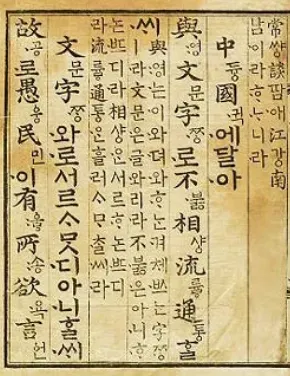 常썅談땀애江강南
남이라ᄒᆞᄂᆞ니라
中듀ᇰ國귁에달아
與영文문字ᄍᆞᆼ로不부ᇙ相샤ᇰ流류ᇢ通토ᇰᄒᆞᆯ
ᄊᆡ
與영는이와뎌와ᄒᆞ는겨체ᄡᅳ는字ᄍᆞᆼ
ㅣ라文문은글와리라不부ᇙ은아니ᄒᆞ
논ᄠᅳ디라相샤ᇰ은서르ᄒᆞ논ᄠᅳ디
라流류ᇢ通토ᇰ은흘러ᄉᆞᄆᆞᄎᆞᆯ씨라
文문字ᄍᆞᆼ와로서르ᄉᆞᄆᆞᆺ디아니ᄒᆞᆯᄊᆡ
故공로愚웅民민이有우ᇢ所송欲욕言언